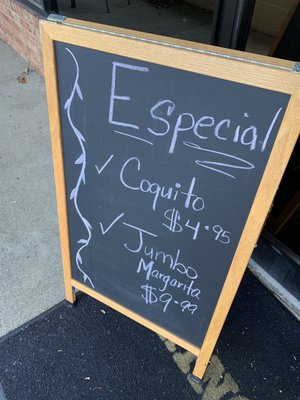 Especial
✓ Coquito
$4.95
✓ Jumbo
Margarita
$9.99